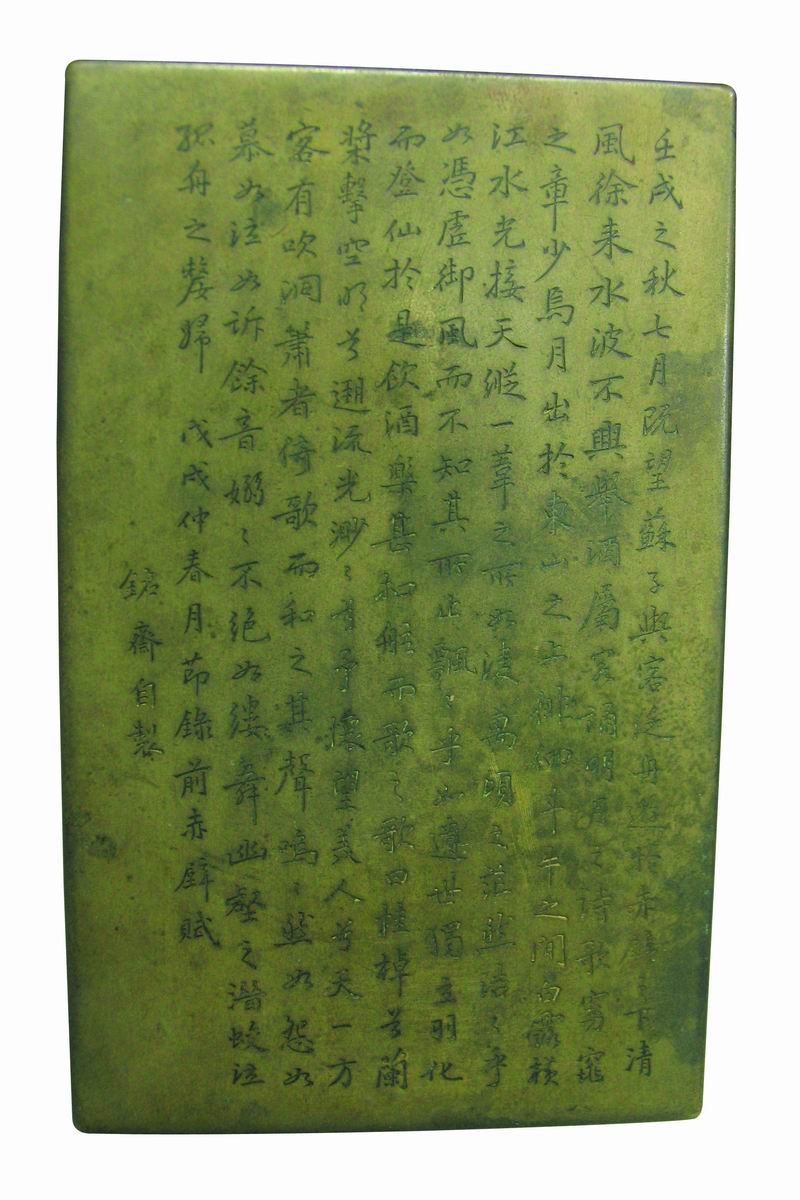 壬戌之秋七月既望蘇子與客泛舟遊於赤壁之下清
風徐来水波不興舉酒屬客誦明月之詩歌窈窕
之章少焉月出於東山之上徘徊斗牛之間白露橫
江水光接天縱一葦之所如淩萬頃之茫然浩〻乎
如憑虛御風而不知其所止飄〻乎如遺世獨立羽化
而登仙於是飲酒樂甚扣舷而歌之歌曰桂棹兮蘭
槳擊空明兮遡流光渺〻兮予懷望美人兮天一方
客有吹洞簫者倚歌而和之其聲嗚〻然如怨如
慕如泣如訴餘音嫋〻不絕如縷舞幽壑之潛蛟泣
孤舟之嫠婦 戊戌仲春月節錄前赤壁賦
齋自製